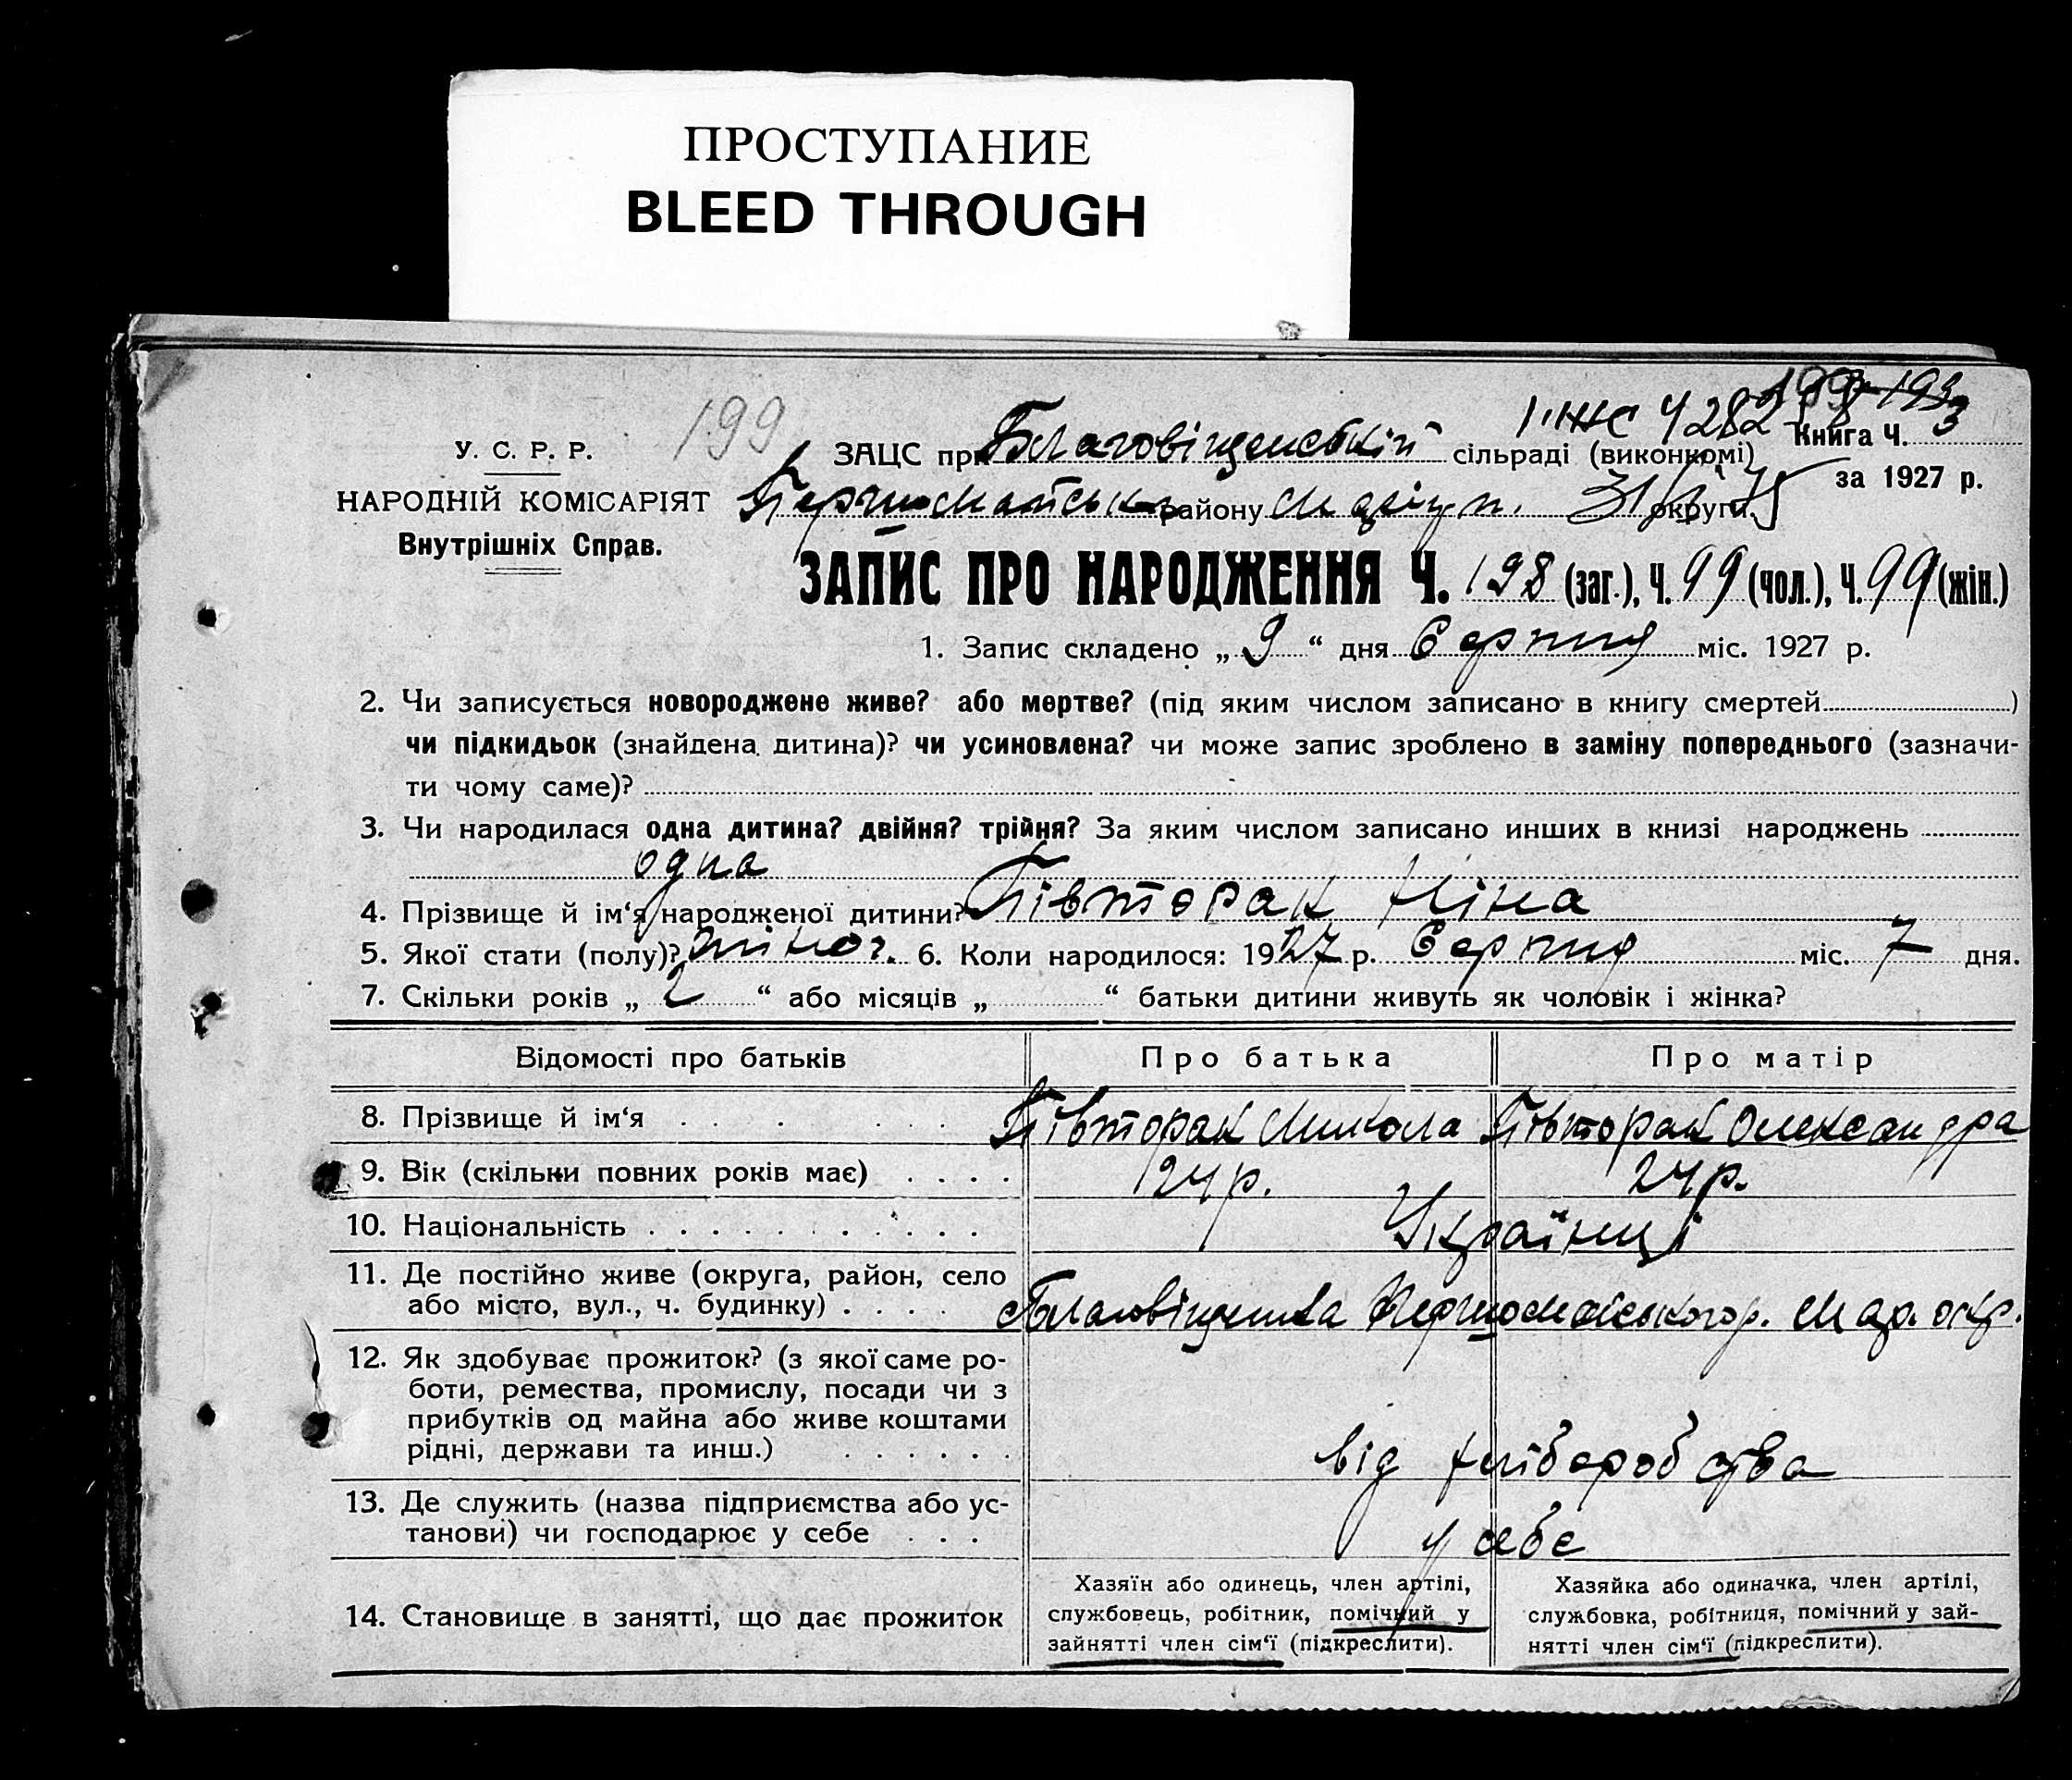 ПРОСТУПАНИЕ
BLEED THROUGH
199
У. С. Р. Р.
НАРОДНІЙ КОМІСАРІЯТ
Внутрішніх Справ.
4282
Книга Ч. 3
за 1927 р.
ЗАЦС при Благовіщенській сільраді (виконкомі)
Першомайськ району Маріуп. округи.
ЗАПИС ПРО НАРОДЖЕННЯ Ч. 198 (заг.), Ч. 99 (чол.), Ч. 99 (жін.)
1. Запис складено „ 9 “ дня Серпня міс. 1927 р.
2. Чи записується новороджене живе? або мертве? (під яким числом записано в книгу смертей )
чи підкидьок (знайдена дитина)? чи усиновлена? чи може запис зроблено в заміну попереднього (зазначи-
ти чому саме)?
3. Чи народилася одна дитина? двійня? трійня? За яким числом записано инших в книзі народжень
одна
4. Прізвище й ім‘я народженої дитини? Півторак Ніна
5. Якої стати (полу)? жіноч. 6. Коли народилося: 1927 р. Серпня міс. 7 дня.
7. Скільки років „ 2 “ або місяців „ “ батьки дитини живуть як чоловік і жінка?
Відомості про батьків Про батька Про матір
8. Прізвище й ім‘я Півторак Микола Півторак Олександра
9. Вік (скільки повних років має) 24 р. 24 р.
10. Національність Українці
11. Де постійно живе (округа, район, село
або місто, вул., ч. будинку) Благовіщенка Першомайського р. Мар. окр.
12. Як здобуває прожиток? (з якої саме ро-
боти, ремества, промислу, посади чи з
прибутків од майна або живе коштами
рідні, держави та инш.) від хліборобства
13. Де служить (назва підприємства або ус-
танови) чи господарює у себе у себе
14. Становище в занятті, що дає прожиток
Хазяїн або одинець, член артілі,
службовець, робітник, помічний у
зайнятті член сім‘ї (підкреслити).
Хазяйка або одиначка, член артілі,
службовка, робітниця, помічний у зай-
нятті член сім‘ї (підкреслити).